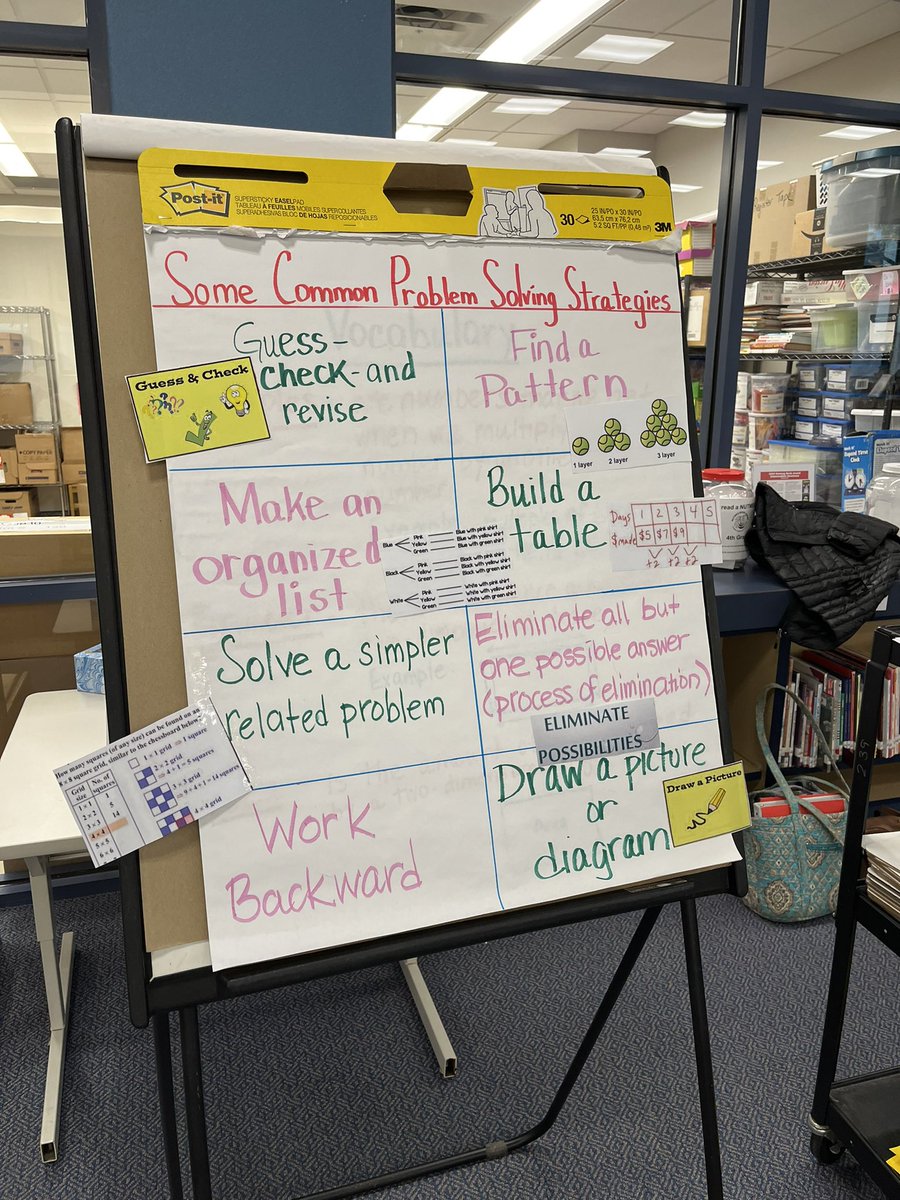 Post-it
SUPERSTICKY EASELPAD
TABLEAU À FEUILLES MOBILES SUPERCOLLANTES
SUPERADHESIVAS BLOC DE HOJAS REPOSICIONABLES
30
25 IN/PO x 30 IN/PO
63,5 cm x 76,2 cm
5.2 SQ FT/PP (0,48 m²)
3M
Some Common Problem Solving Strategies
Vocabulary
Guess-
check-and
revise
Guess & Check
Find a
Pattern
1 layer
2 layer
3 layer
Make an
organized
list
Blue
Pink
Yellow
Green
Blue with pink shirt
Blue with yellow shirt
Blue with green shirt
Black
Pink
Yellow
Green
Black with pink shirt
Black with yellow shirt
Black with green shirt
White
Pink
Yellow
Green
White with pink shirt
White with yellow shirt
White with green shirt
Build a
table
Days 1 2 3 4 5
$made $5 $7 $9
+2 +2 +2
Solve a simpler
related problem
How many squares (of any size) can be found on an
8 square grid, similar to the chessboard below
Grid size
No. of squares
1 × 1 1
2 × 2 5
3 × 3 14
4 × 4
5 × 5
6 × 6
1 × 1 grid ⇒ 1 square
2 × 2 grid
⇒ 4 + 1 = 5 squares
3 × 3 grid
⇒ 9 + 4 + 1 = 14 squares
4 × 4 grid
Eliminate all but
one possible answer
(process of elimination)
ELIMINATE
POSSIBILITIES
Work
Backward
Draw a picture
or
diagram
Draw a Picture
COPY PAPER
read a NUT
4th Gra
239